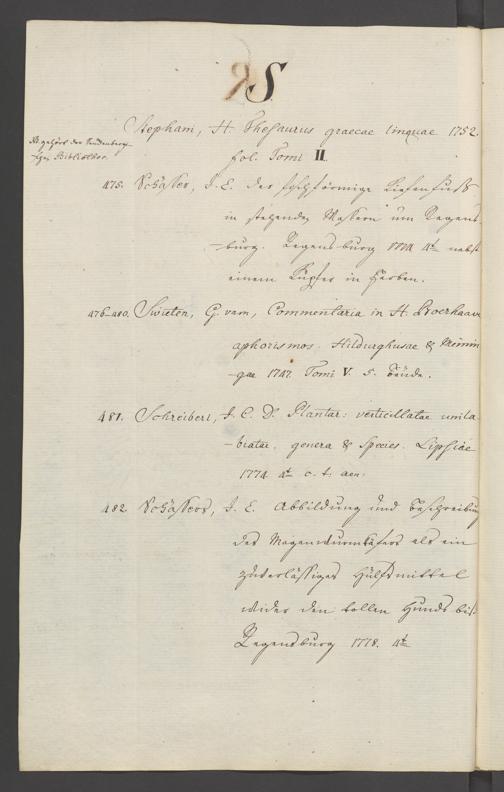 S
Stephani, H. Thesaurus graecae linquae 1752.
fol. Tomi II.
gehört der Senckenberg-
Bibliothec.
475. Schäffer, J. E. der fischförmige Kiefenfuß
in stehenden Wassern um Regens-
-burg. Regensburg 1774 4to nebst
einem Kupfer in Farben.
476-480. Swieten, G. van, Commentaria in H. Boerhaave
aphorismos. Hildurghusae & Meinin-
-gae 1747. Tomi V. 5. Bände.
481. Schreiberi, J. C. D. Plantar: verticillatae unila-
-biatar. genera & Species. Lipsiae
1774 4to c. t. aen.
482. Schäffers, J. E. Abbildung und Beschreibung
des Mayenwurmkäfers als ein
zuverlässiges Hülfsmittel
wider den tollen Hunds biß.
Regensburg 1778. 4to